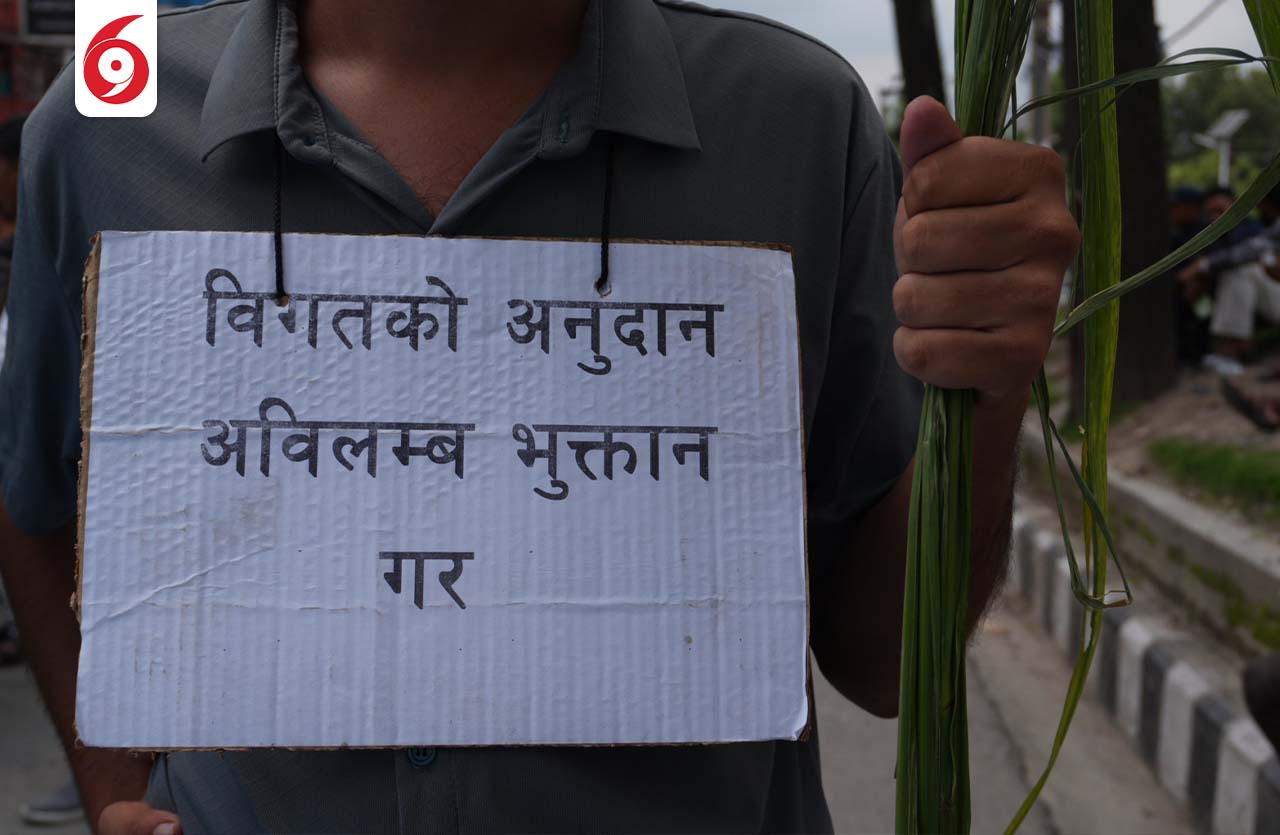 विगतको अनुदान
अविलम्ब भुक्तान
गर